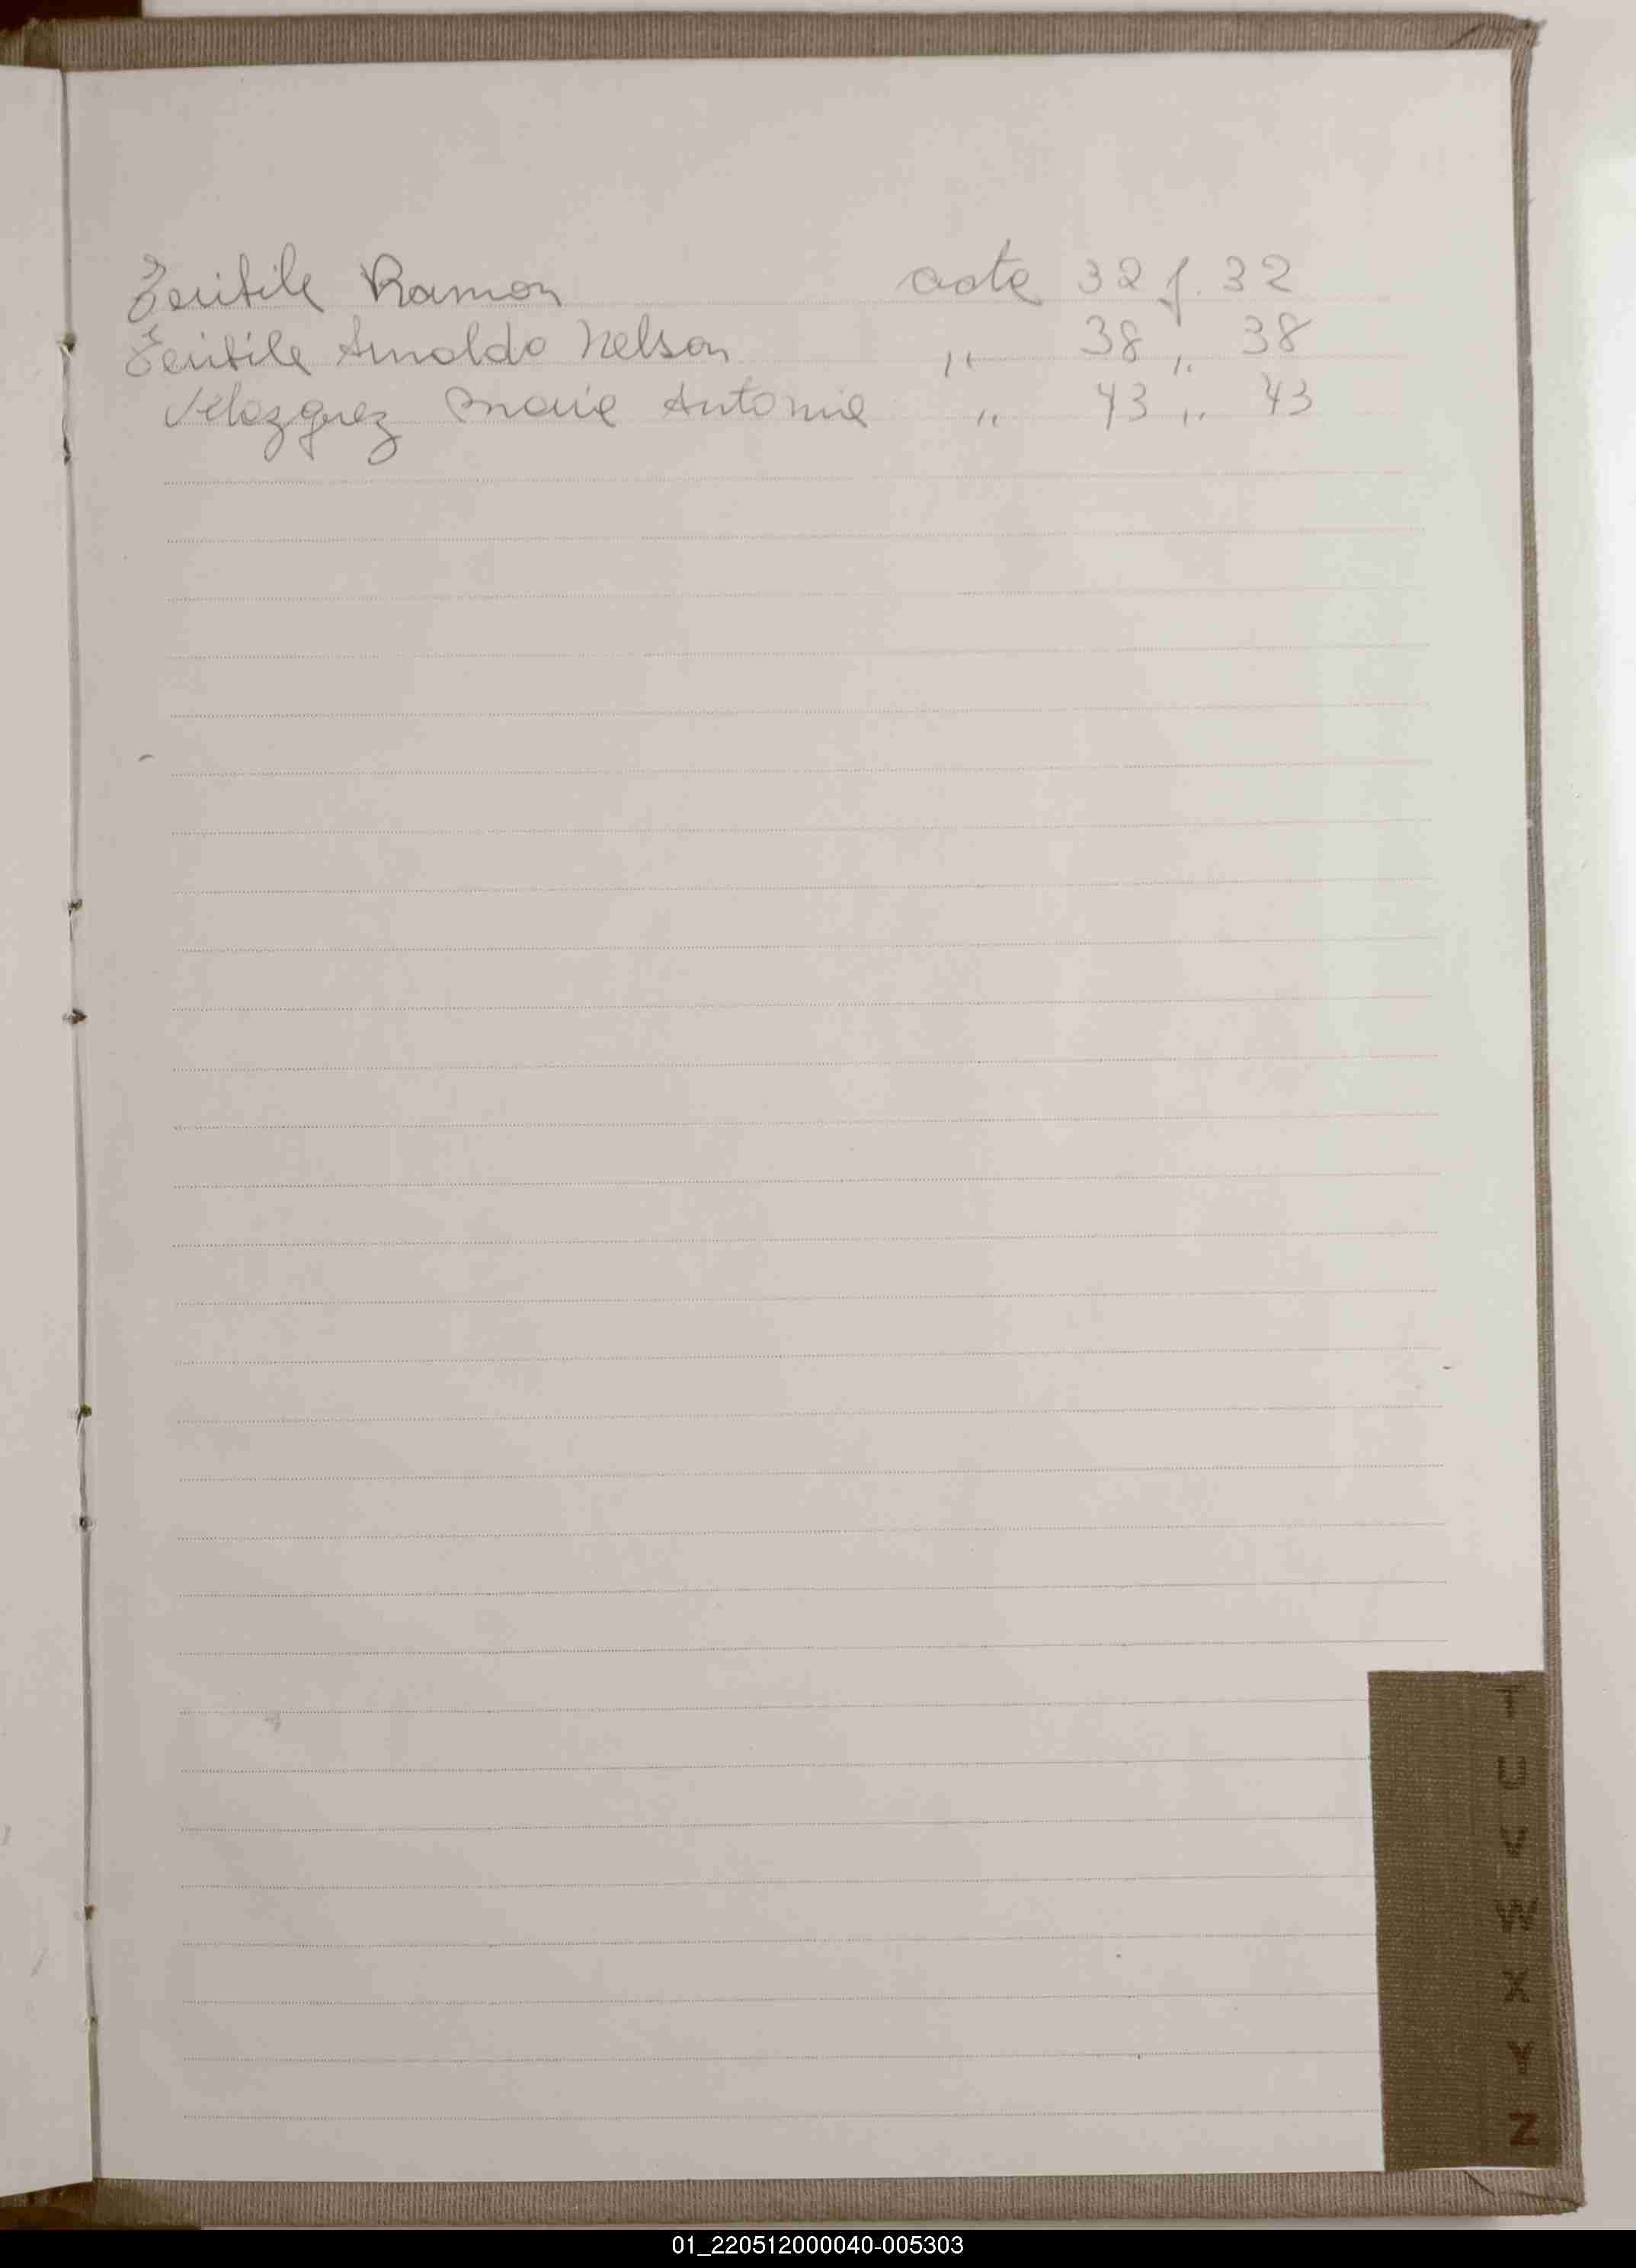 Zeutile Ramon acta 32 f. 32
Zeutile Arnoldo Nelson " 38 " 38
Velazquez Maria Antonia " 43 " 43
T
U
V
W
X
Y
Z
01_220512000040-005303